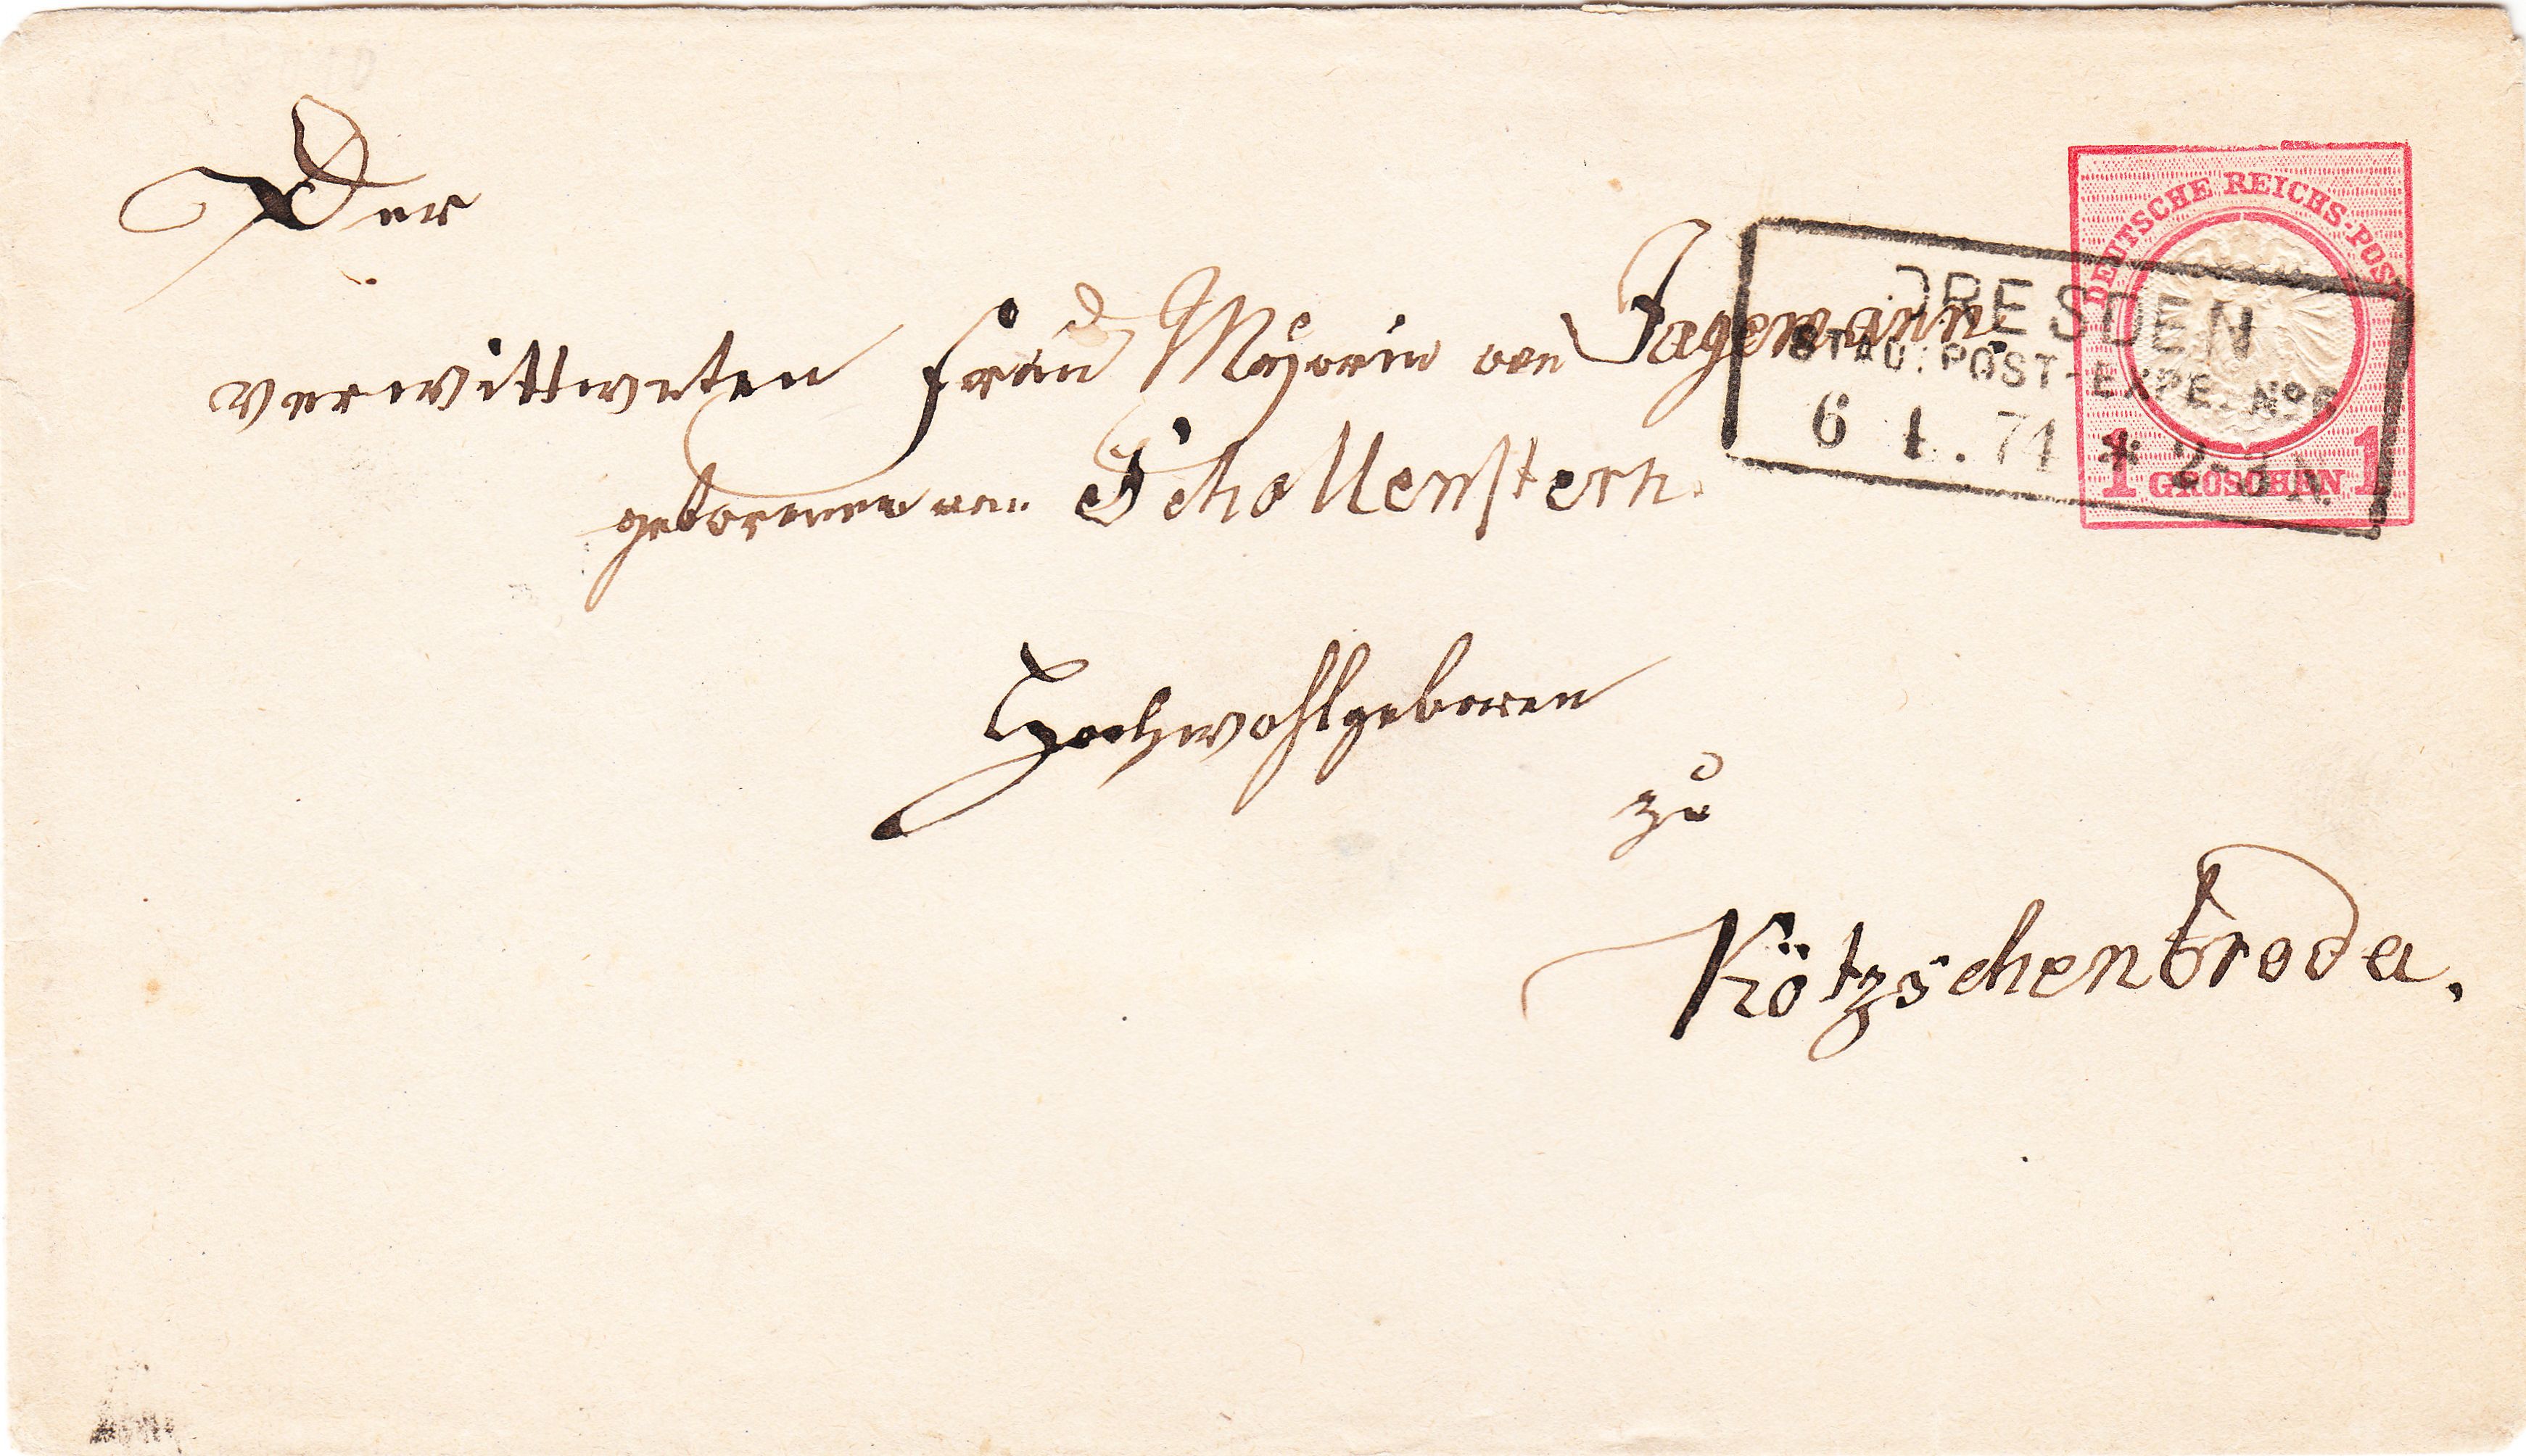 Der
verwittweten Frau Majorin von Jagemann,
gebornen von Schollenstern.
Hochwohlgeboren
zu
Kötzschenbroda.
DEUTSCHE REICHS-POST
1 GROSCHEN 1
DRESDEN
POST-EXPE. No
6 1. 74 * 2-3 N.